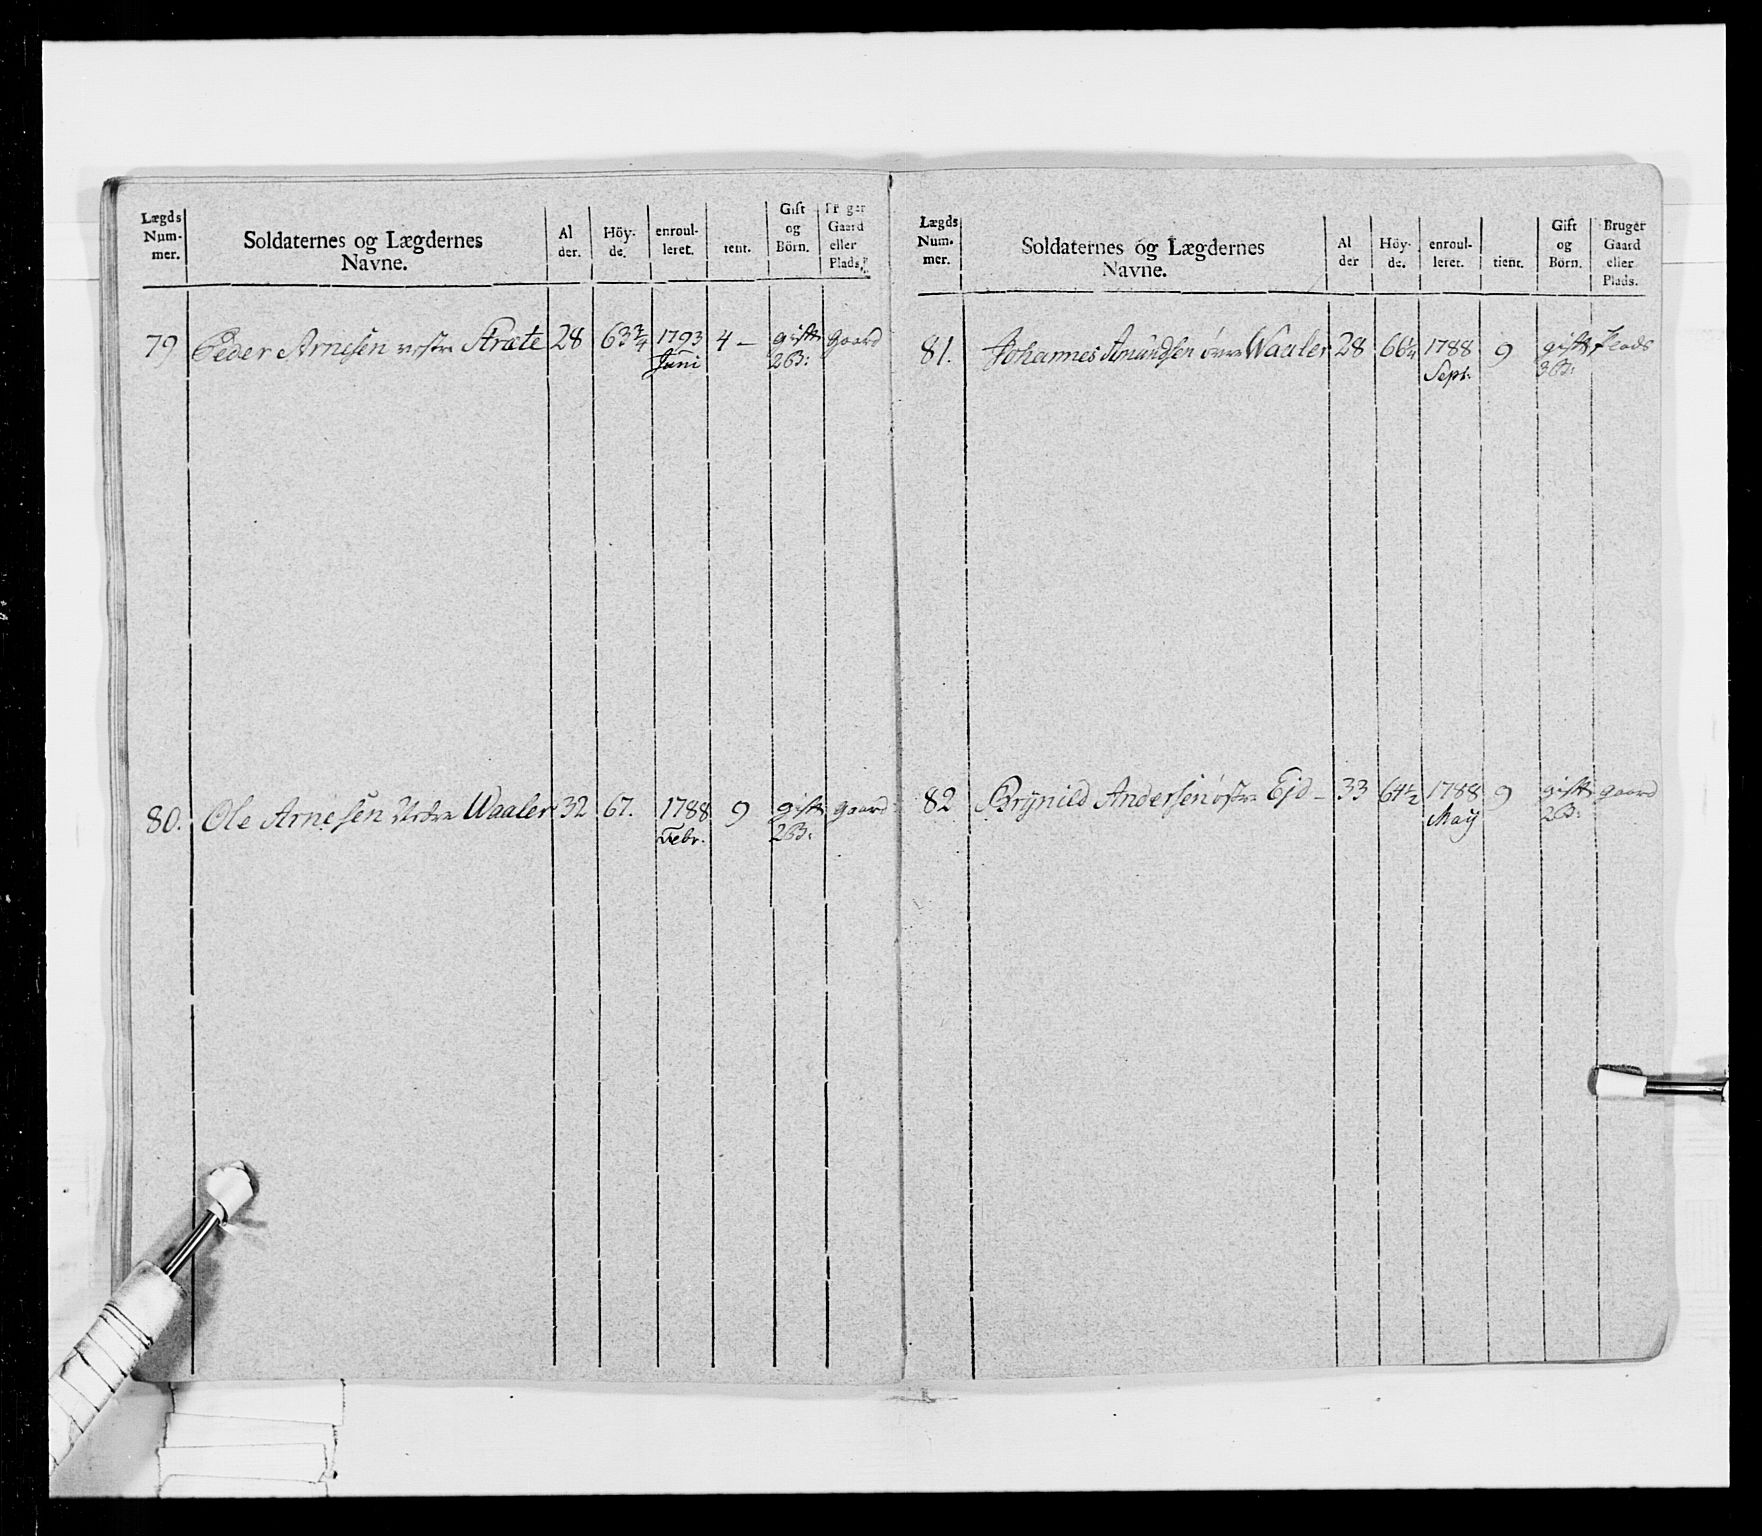 Lægds Num- mer.
Soldaternes og Lægdernes Navne.
Al der.
Höy- de.
enroul- leret.
tient.
Gift og Börn.
Bruger Gaard eller Plads.
79 Peder Arnesen vestre Stræte 28 63 3/4 1793 4 – gift gaard
Juni 2B:
80. Ole Arnesen Waaler 32 67. 1788 9 gift gaard
Febr. 2B:
Lægds Num- mer.
Soldaternes og Lægdernes Navne.
Al der
Höy- de.
enroul- leret.
tient.
Gift og Börn.
Bruger Gaard eller Plads.
81. Johannes Amundsen Waaler 28 66 1/4 1788 9 gift Plads
Sept. 3B:
82 Brynild Andersen östre Ejd – 33 64 1/2 1788 9 gift gaard
May 2B: